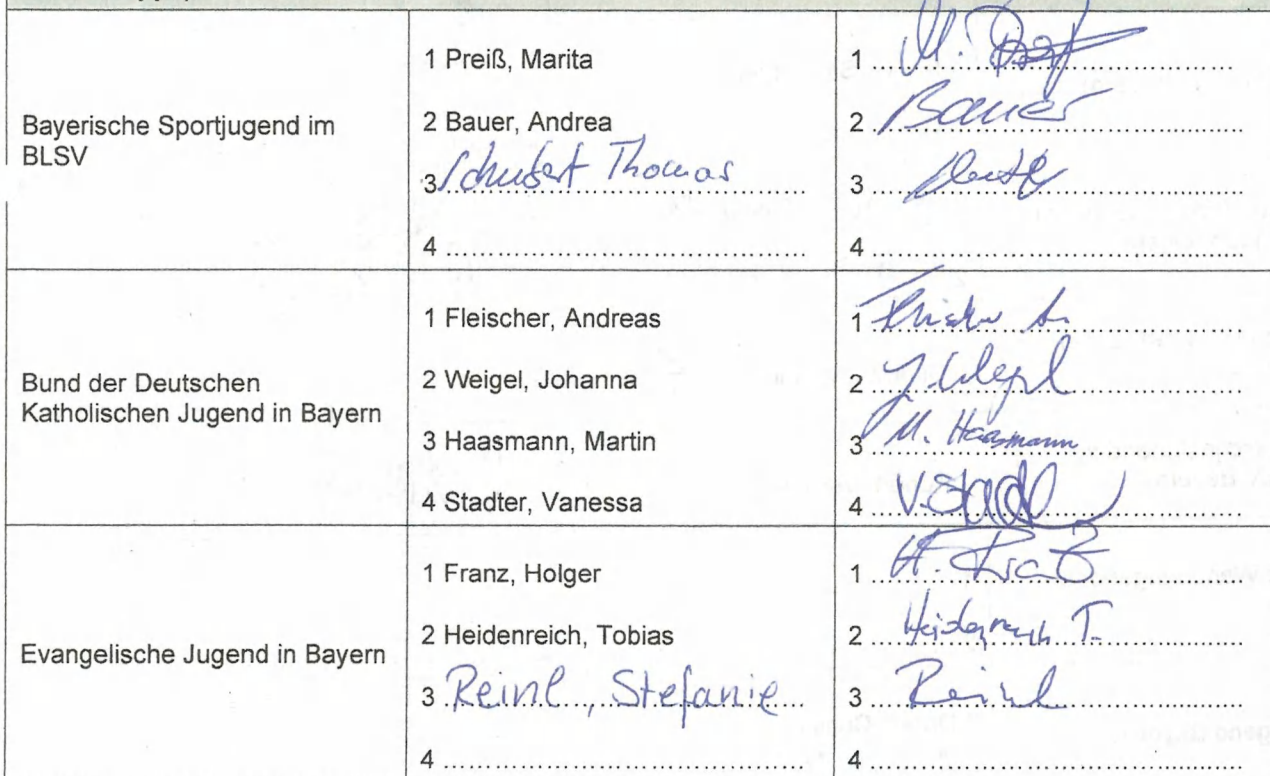 Bayerische Sportjugend im
BLSV
1 Preiß, Marita
2 Bauer, Andrea
3 Schubert Thomas
4
1 M.
2 Bauer
3
4
Bund der Deutschen
Katholischen Jugend in Bayern
1 Fleischer, Andreas
2 Weigel, Johanna
3 Haasmann, Martin
4 Stadter, Vanessa
1
2 J. Weigel
3 M. Haasmann
4
Evangelische Jugend in Bayern
1 Franz, Holger
2 Heidenreich, Tobias
3 Reinl, Stefanie
4
1 H. Franz
2 Heidenreich T.
3 Reinl
4